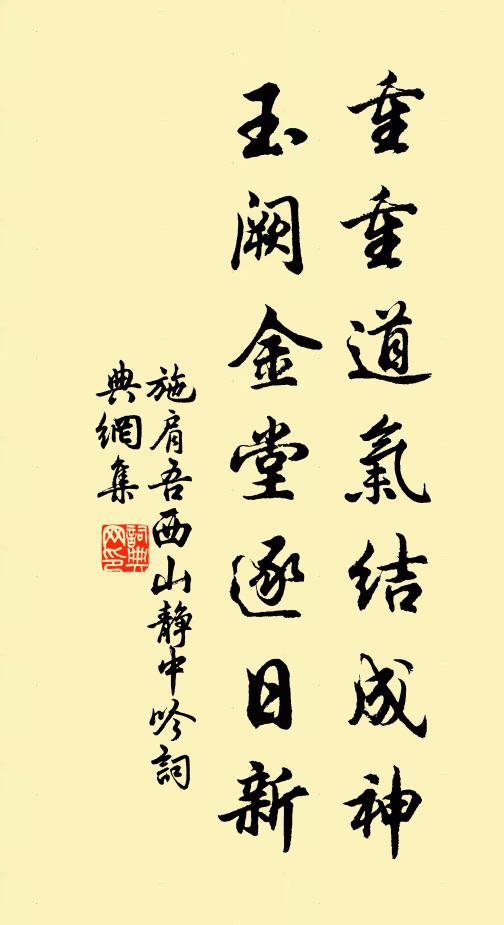 重重道氣結成神
玉阙金堂逐日新
施肩吾西山静中吟詞
典網集
詞典网印